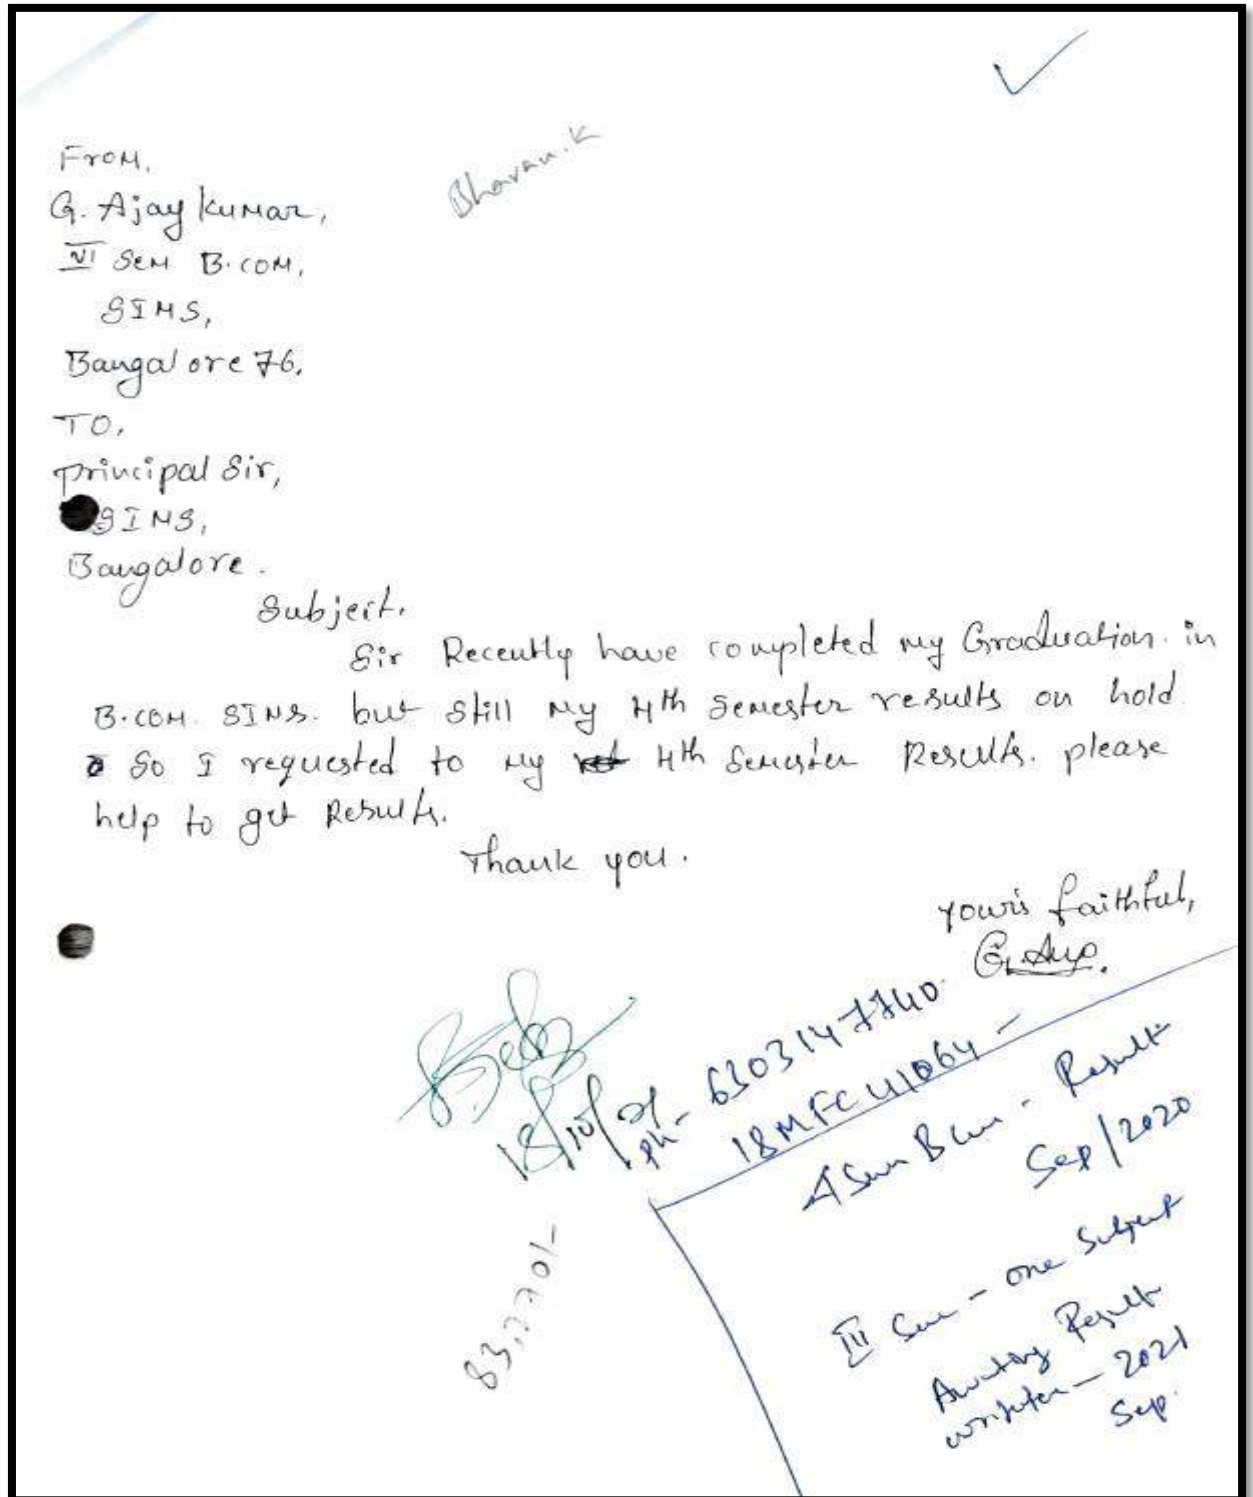 From,
Bharan.K
G. Ajay Kumar,
VI Sem B.com,
SIMS,
Bangalore 76.
TO,
principal Sir,
SIMS,
Bangalore.
Subject.
Sir Recently have completed my Graduation. in
B.com. SIMS. but still my 4th Semester results on hold
So I requested to my 4th Semester Results. please
help to get Results.
Thank you.
your's faithful,
18/10/21
ph- 6303147740
18MFC41064 -
4 Sem B Com - Result
Sep/2020
III Sem - one Subject
Awaiting Result
written - 2021
Sep.
83,770/-